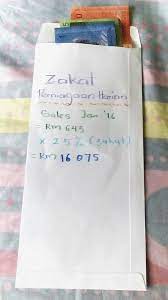 Zakat
Perniagaan Harian
Sales Jan '16
= RM 643
x 2.5% (zakat)
= RM 16.075